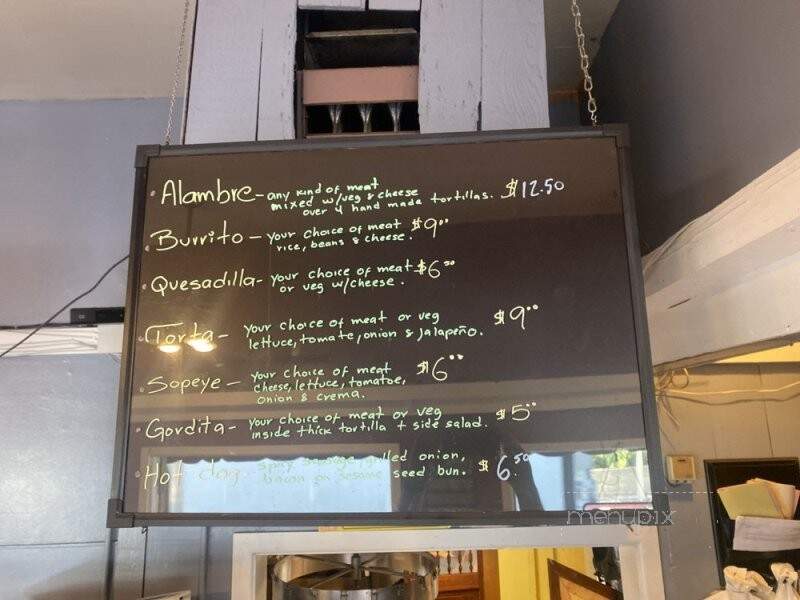 Alambre - any kind of meat $12.50
mixed w/veg & cheese
over 4 hand made tortillas.
Burrito - your choice of meat $9.00
rice, beans & cheese.
Quesadilla - your choice of meat $6.50
or veg w/cheese.
Torta - your choice of meat or veg $9.00
lettuce, tomate, onion & jalapeño.
Sopeye - your choice of meat $6.00
cheese, lettuce, tomatoe,
onion & crema.
Gordita - your choice of meat or veg $5.00
inside thick tortilla + side salad.
Hot dog - spicy sausage, grilled onion, $6.50
bacon on sesame seed bun.
menupix